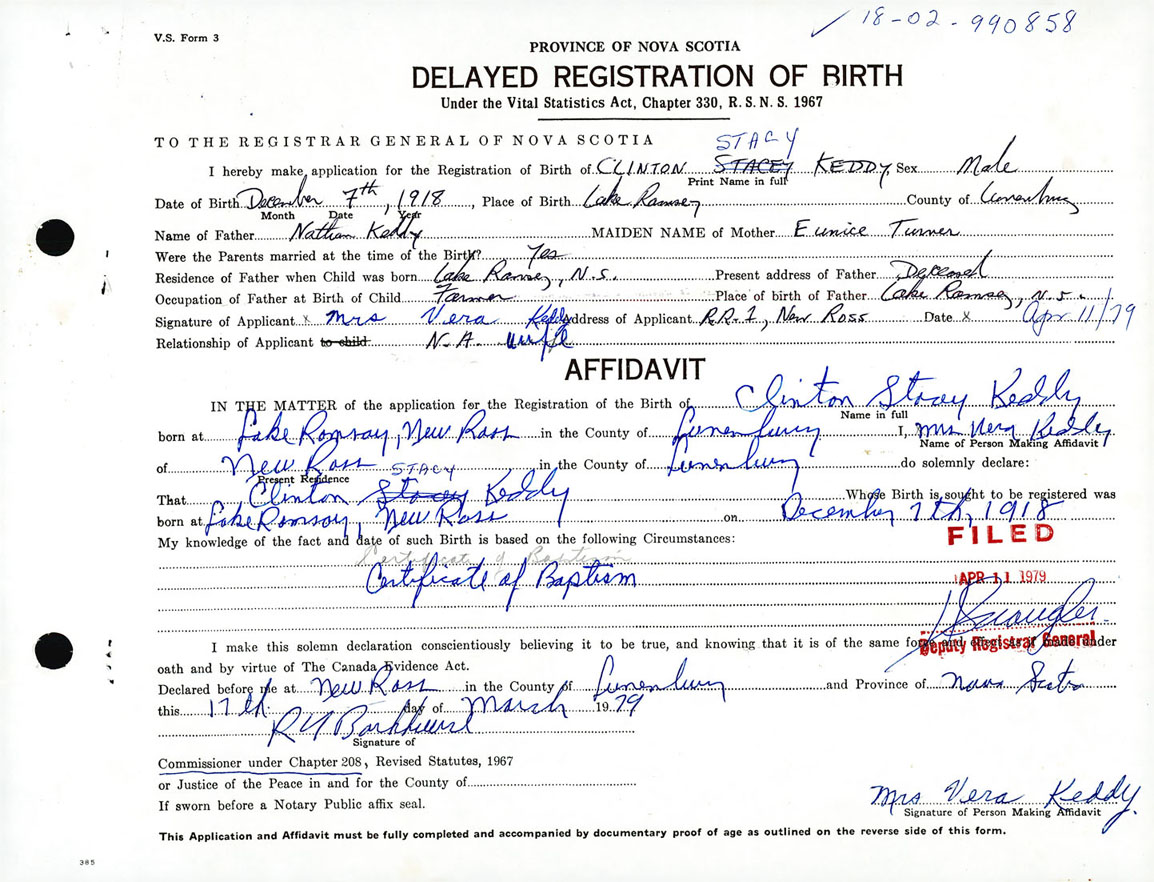 18-02-990858
V.S. Form 3
PROVINCE OF NOVA SCOTIA
DELAYED REGISTRATION OF BIRTH
Under the Vital Statistics Act, Chapter 330, R.S.N.S. 1967
TO THE REGISTRAR GENERAL OF NOVA SCOTIA
STACY
I hereby make application for the Registration of Birth of CLINTON STACEY KEDDY, Sex Male
Print Name in full
Date of Birth December 7th, 1918, Place of Birth Lake Ramsey County of Lunenburg
Month Date Year
Name of Father Nathan Keddy MAIDEN NAME of Mother Eunice Turner
Were the Parents married at the time of the Birth? Yes
Residence of Father when Child was born Lake Ramsey, N.S. Present address of Father Deceased
Occupation of Father at Birth of Child Farmer Place of birth of Father Lake Ramsey, N.S.
Signature of Applicant x Mrs Vera Keddy Address of Applicant R.R.1, New Ross Date x Apr 11/79
Relationship of Applicant to child N.A. wife
AFFIDAVIT
IN THE MATTER of the application for the Registration of the Birth of Clinton Stacy Keddy
Name in full
born at Lake Ramsay, New Ross in the County of Lunenburg I, Mrs Vera Keddy
Name of Person Making Affidavit
of New Ross in the County of Lunenburg do solemnly declare:
Present Residence
STACY
That Clinton Stacey Keddy Whose Birth is sought to be registered was
born at Lake Ramsay, New Ross on December 7th, 1918
My knowledge of the fact and date of such Birth is based on the following Circumstances:
FILED
Certificate of Baptism
Certificate of Baptism
APR 11 1979
Deputy Registrar General
I make this solemn declaration conscientiously believing it to be true, and knowing that it is of the same force and effect as if made under
oath and by virtue of The Canada Evidence Act.
Declared before me at New Ross in the County of Lunenburg and Province of Nova Scotia
this 17th day of March 1979
Signature of
Commissioner under Chapter 208, Revised Statutes, 1967
or Justice of the Peace in and for the County of
If sworn before a Notary Public affix seal.
Mrs Vera Keddy.
Signature of Person Making Affidavit
This Application and Affidavit must be fully completed and accompanied by documentary proof of age as outlined on the reverse side of this form.
385